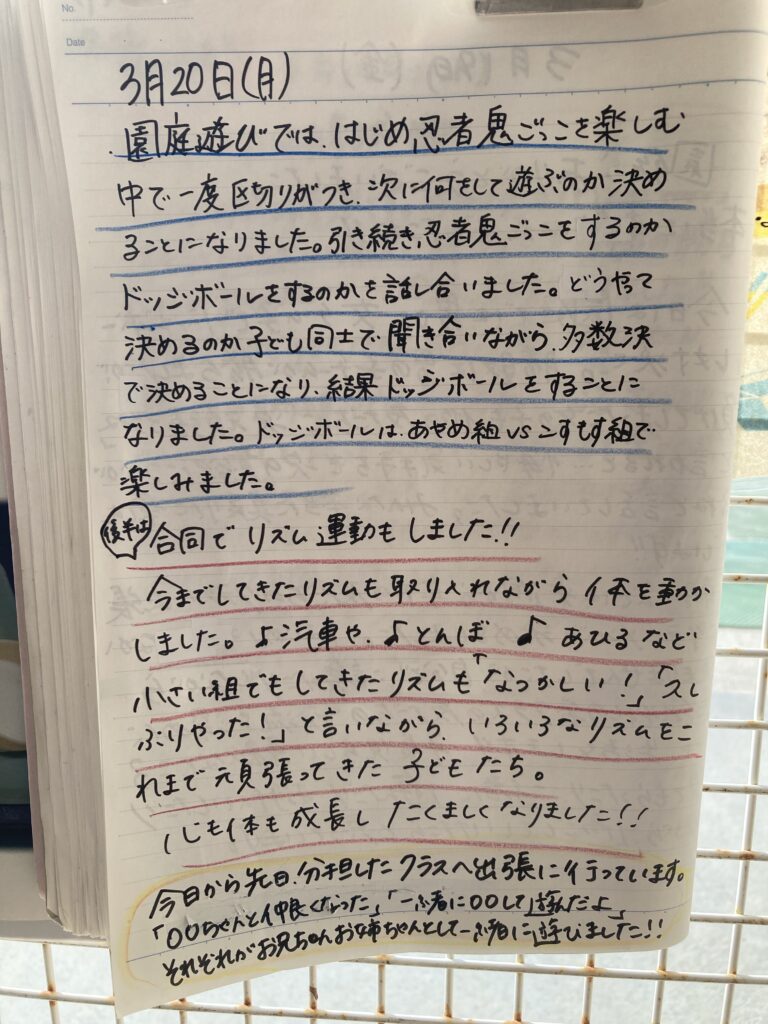 No.
Date
3月20日(月)
園庭遊びでは、はじめ、忍者鬼ごっこを楽しむ
中で一度区切りがつき、次に何をして遊ぶのか決め
ることになりました。引き続き、忍者鬼ごっこをするのか
ドッジボールをするのかを話し合いました。どうやって
決めるのか子ども同士で聞き合いながら、多数決
で決めることになり、結果ドッジボールをすることに
なりました。ドッジボールは、あやめ組vsこすもす組で
楽しみました。
後半は 合同でリズム運動もしました!!
今までしてきたリズムも取り入れながら体を動か
しました。♪汽車や、♪とんぼ ♪あひるなど
小さい組でもしてきたリズムも「なつかしい!」「久し
ぶりやった!」と言いながら、いろいろなリズムをこ
れまで頑張ってきた子どもたち。
心も体も成長したくましくなりました!!
今日から先日、分担したクラスへ出張に行っています。
「〇〇ちゃんと仲良くなった」「一緒に〇〇して遊んだよ」
それぞれがお兄ちゃんお姉ちゃんとして一緒に遊びました!!